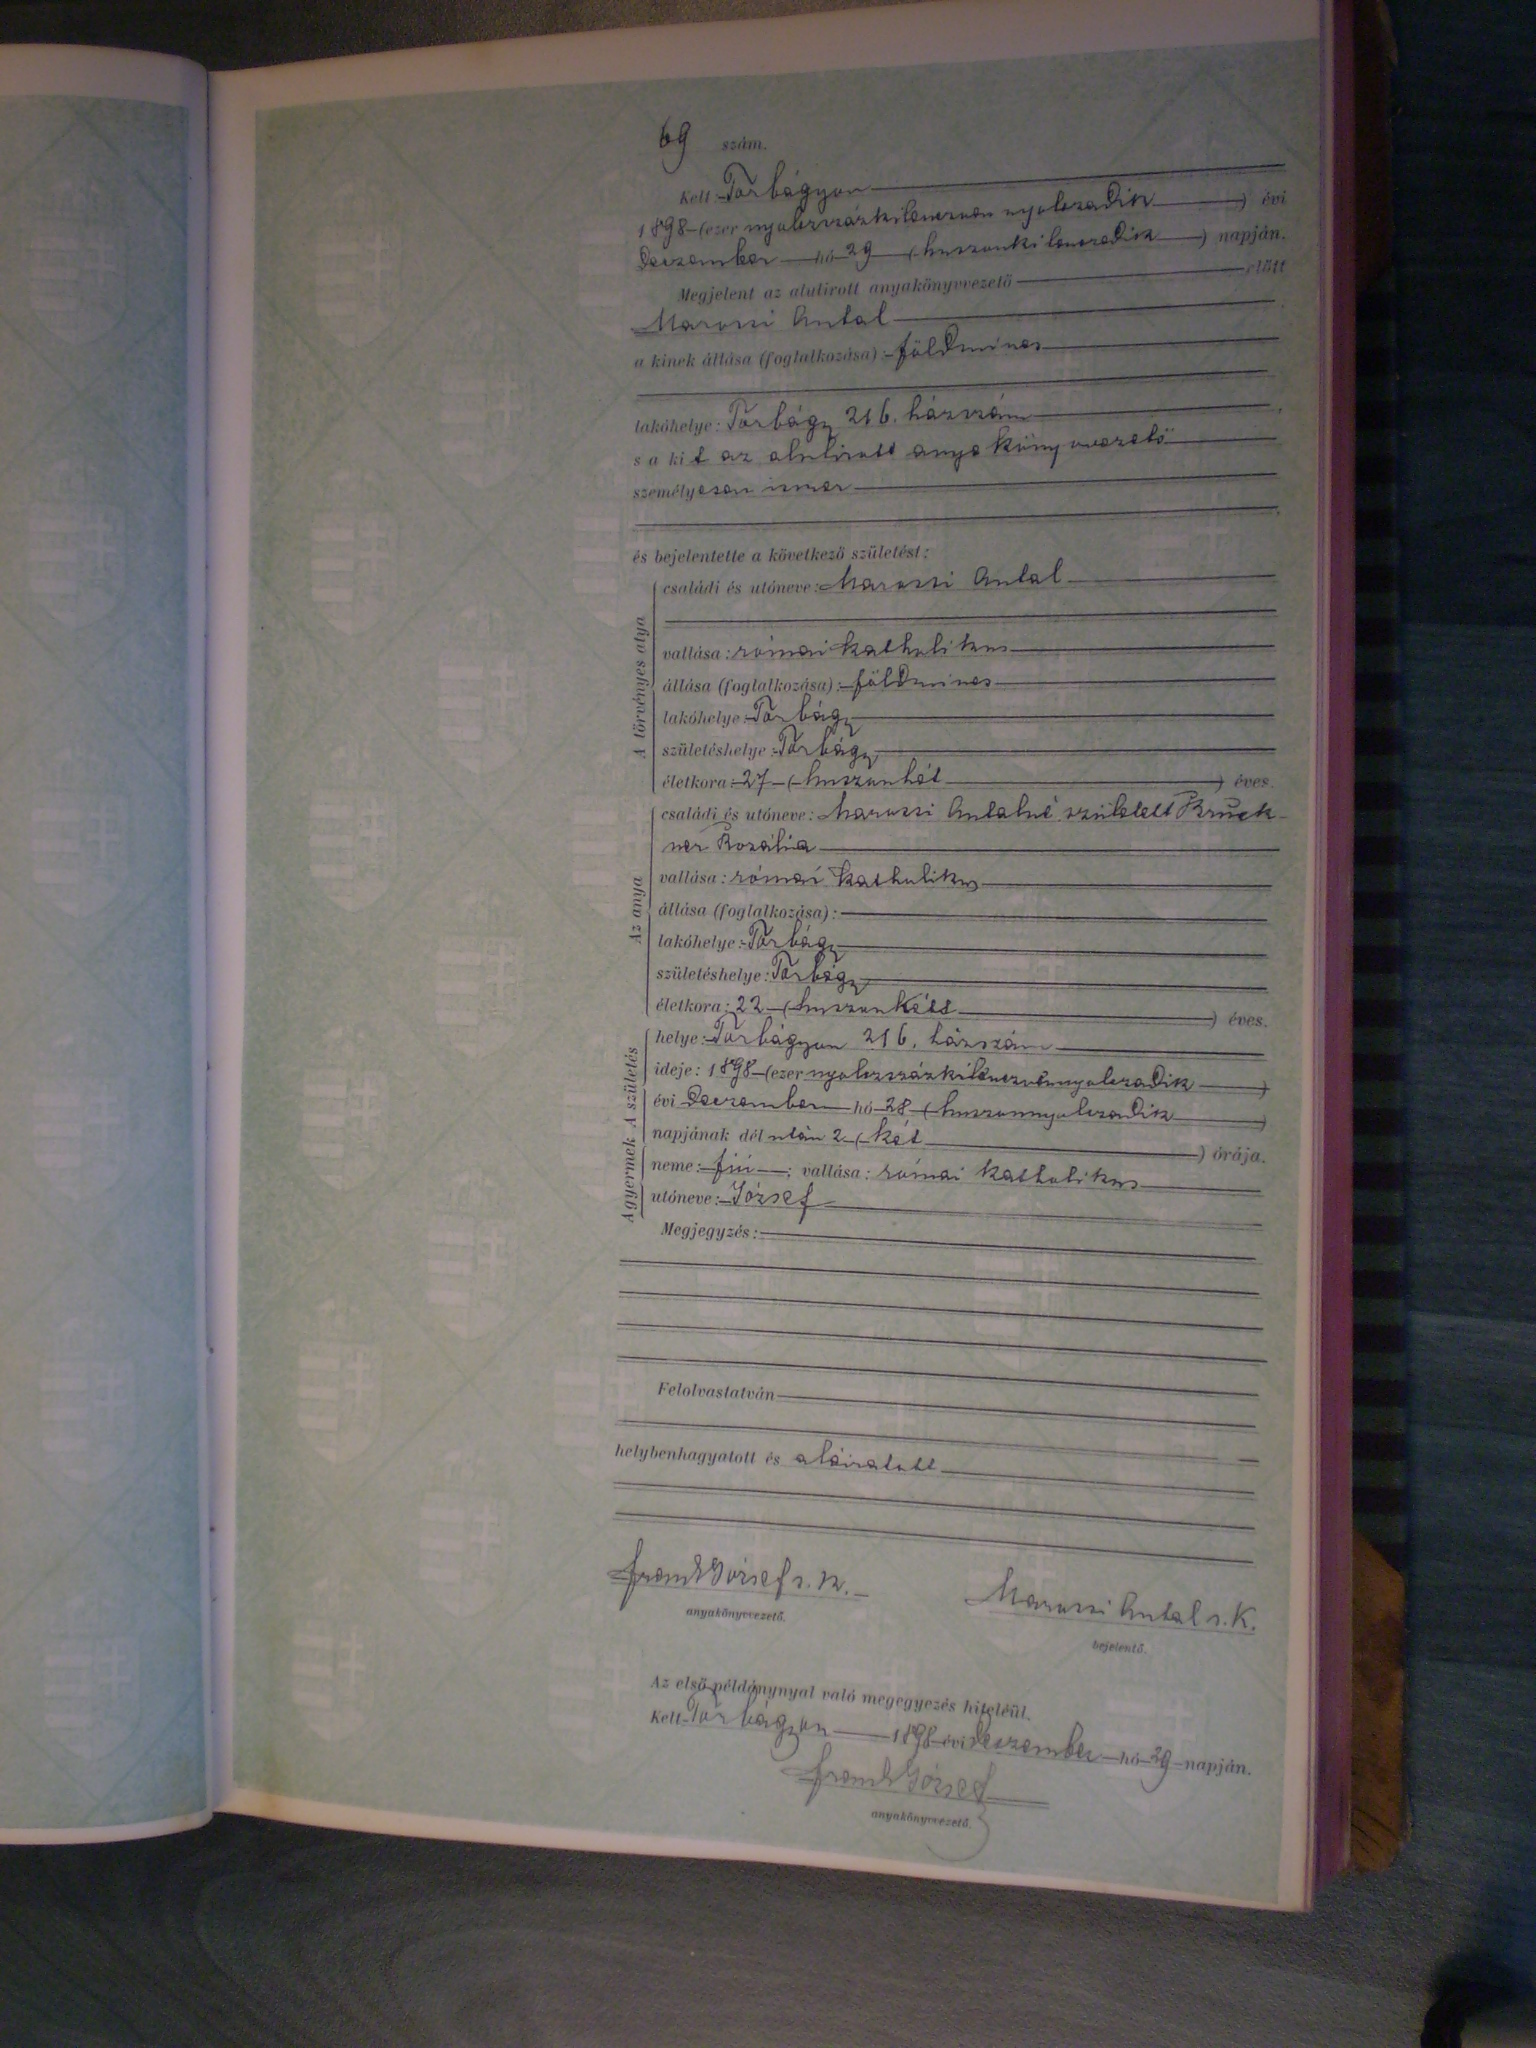 69 szám.
Kelt Torbágyon
1898 (ezer nyolczszázkilenczven nyolczadik) évi
Deczember hó 29 (huszonkilenczedik) napján.
Megjelent az alulirott anyakönyvvezető előtt
Marossi Antal
a kinek állása (foglalkozása): földmives
lakóhelye: Torbágy 216. házszám
s a kit az alulirott anyakönyvvezető
személyesen ismer
és bejelentette a következő születést:
A törvényes atya
családi és utóneve: Marossi Antal
vallása: római katholikus
állása (foglalkozása): földmives
lakóhelye: Torbágy
születéshelye: Torbágy
életkora: 27 (huszonhét) éves.
Az anya
családi és utóneve: Marossi Antalné született Bruck-
ner Rozália
vallása: római katholikus
állása (foglalkozása):
lakóhelye: Torbágy
születéshelye: Torbágy
életkora: 22 (huszonkétt) éves.
A születés
helye: Torbágyon 216. házszám
ideje: 1898 (ezer nyolczszázkilenczvennyolczadik)
évi Deczember hó 28 (huszonnyolczadik)
napjának dél után 2 (két) órája.
A gyermek
neme: fiú; vallása: római katholikus
utóneve: József
Megjegyzés:
Felolvastatván
helybenhagyatott és aláiratott
Frank József s. k.
anyakönyvvezető.
Marossi Antal s. k.
bejelentő.
Az első példánynyal való megegyezés hiteléül.
Kelt Torbágyon 1898 évi deczember hó 29 napján.
Frank József
anyakönyvvezető.